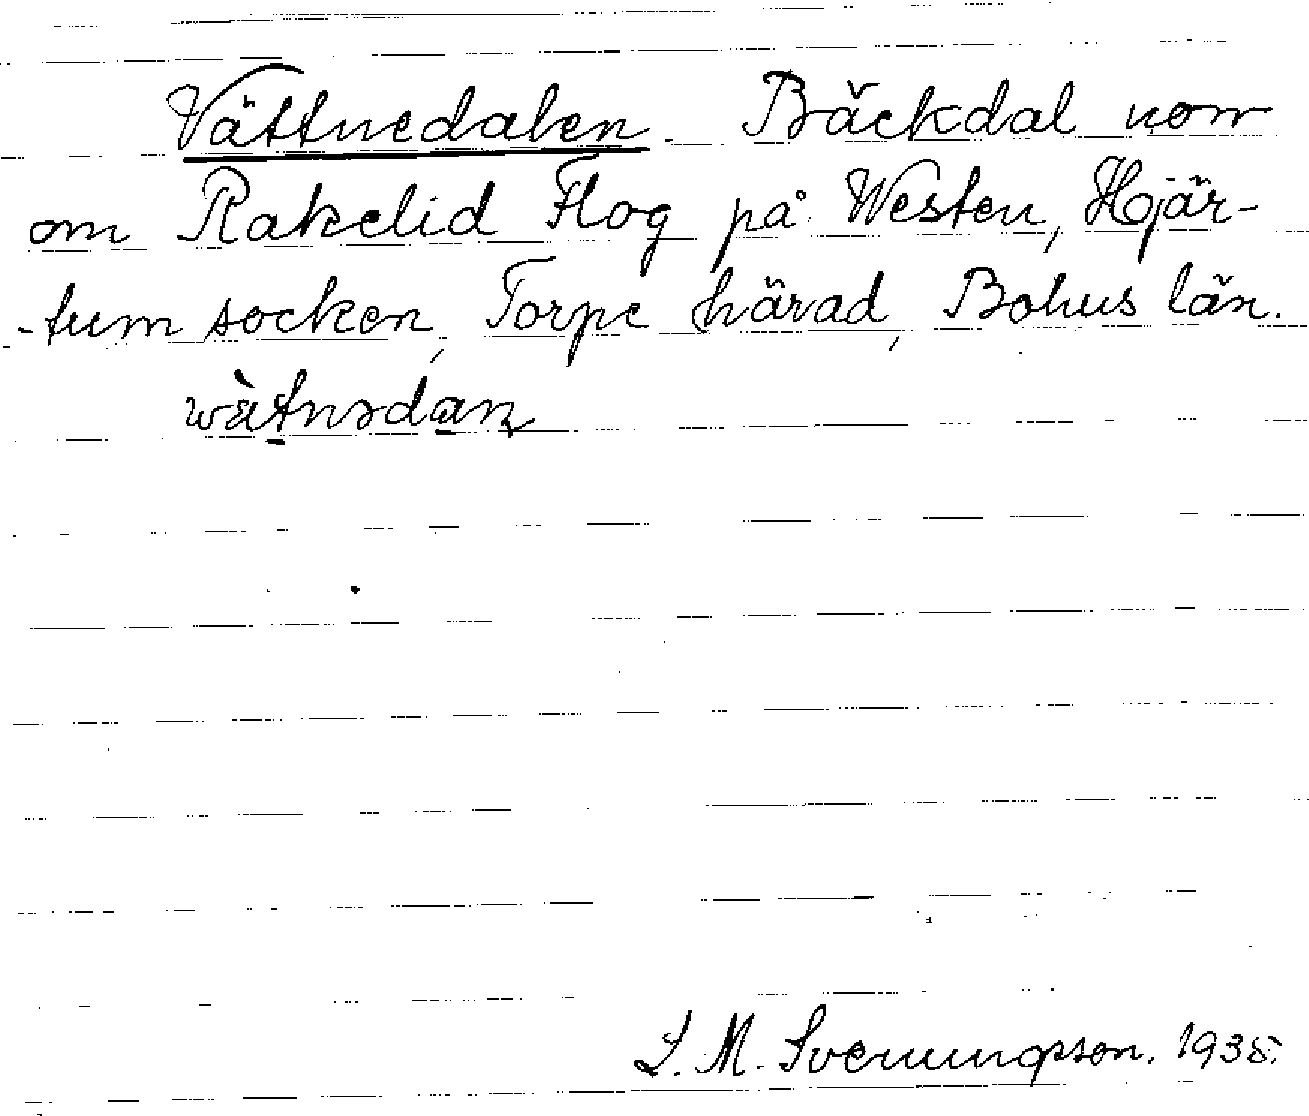 Vättnedalen. Bäckdal norr
om Rakelid Flog på Westen, Hjär-
-tum socken, Torpe härad, Bohus län.
wàtnədan
L. M. Svenungson. 1935.